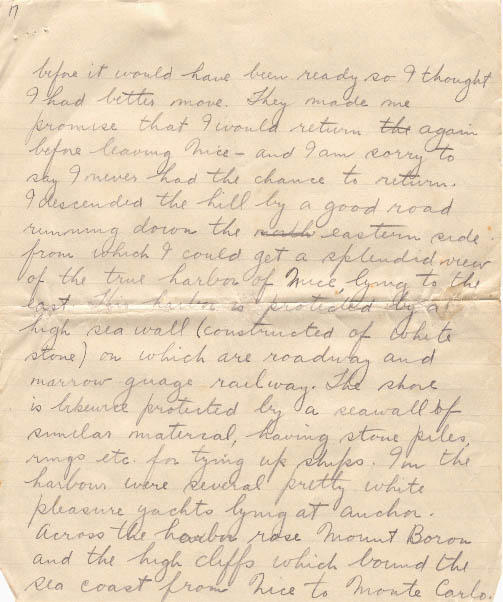 17
before it would have been ready so I thought
I had better move. They made me
promise that I would return the again
before leaving Nice – and I am sorry to
say I never had the chance to return.
I descended the hill by a good road
running down the north eastern side
from which I could get a splendid view
of the true harbor of Nice, lying to the
east. This harbor is protected by a
high sea wall (constructed of white
stone) on which are roadway and
marrow guage railway. The shore
is likewise protected by a seawall of
similar material, having stone piles,
rings etc. for tying up ships. In the
harbour were several pretty white
pleasure yachts lying at anchor.
Across the harbor rose Mount Boron
and the high cliffs which bound the
sea coast from Nice to Monte Carlo.